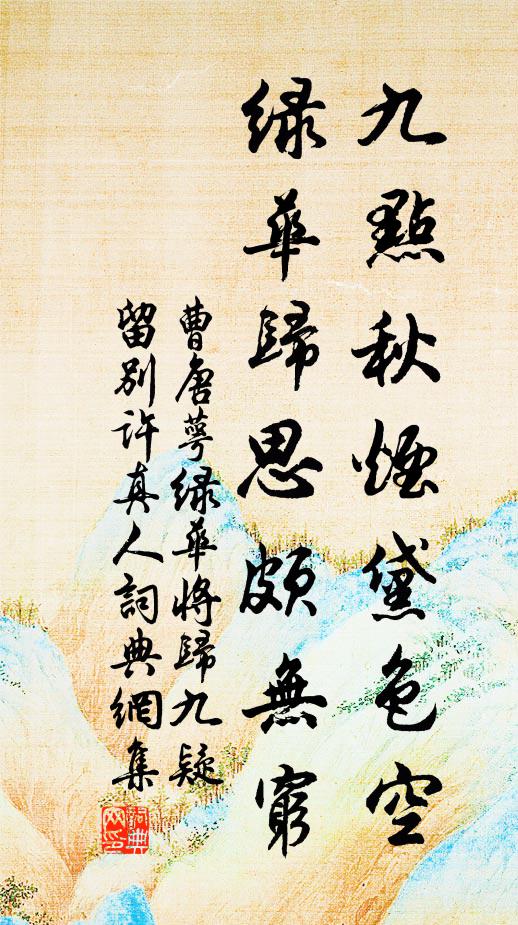 九點秋煙黛色空
綠華歸思頗無窮
曹唐萼綠華將歸九疑
留別許真人詞典網集
詞典网印